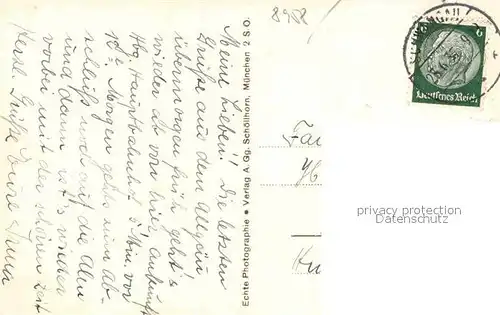 8982
Meine Lieben! Die letzten
Grüße aus dem Allgäu
übermorgen früh geht's
wieder ab von hier Ankunft
Hbg. Hauptbahnhof
Morgen gehts zum Ab-
schluß noch auf die Alm
und dann ist's wieder
vorbei mit der schönen Zeit
Herzl. Grüße Eure Anna
Echte Photographie • Verlag A. Gg. Schöllhorn, München 2 S.O.
6
Deutsches Reich
privacy protection
datenschutz